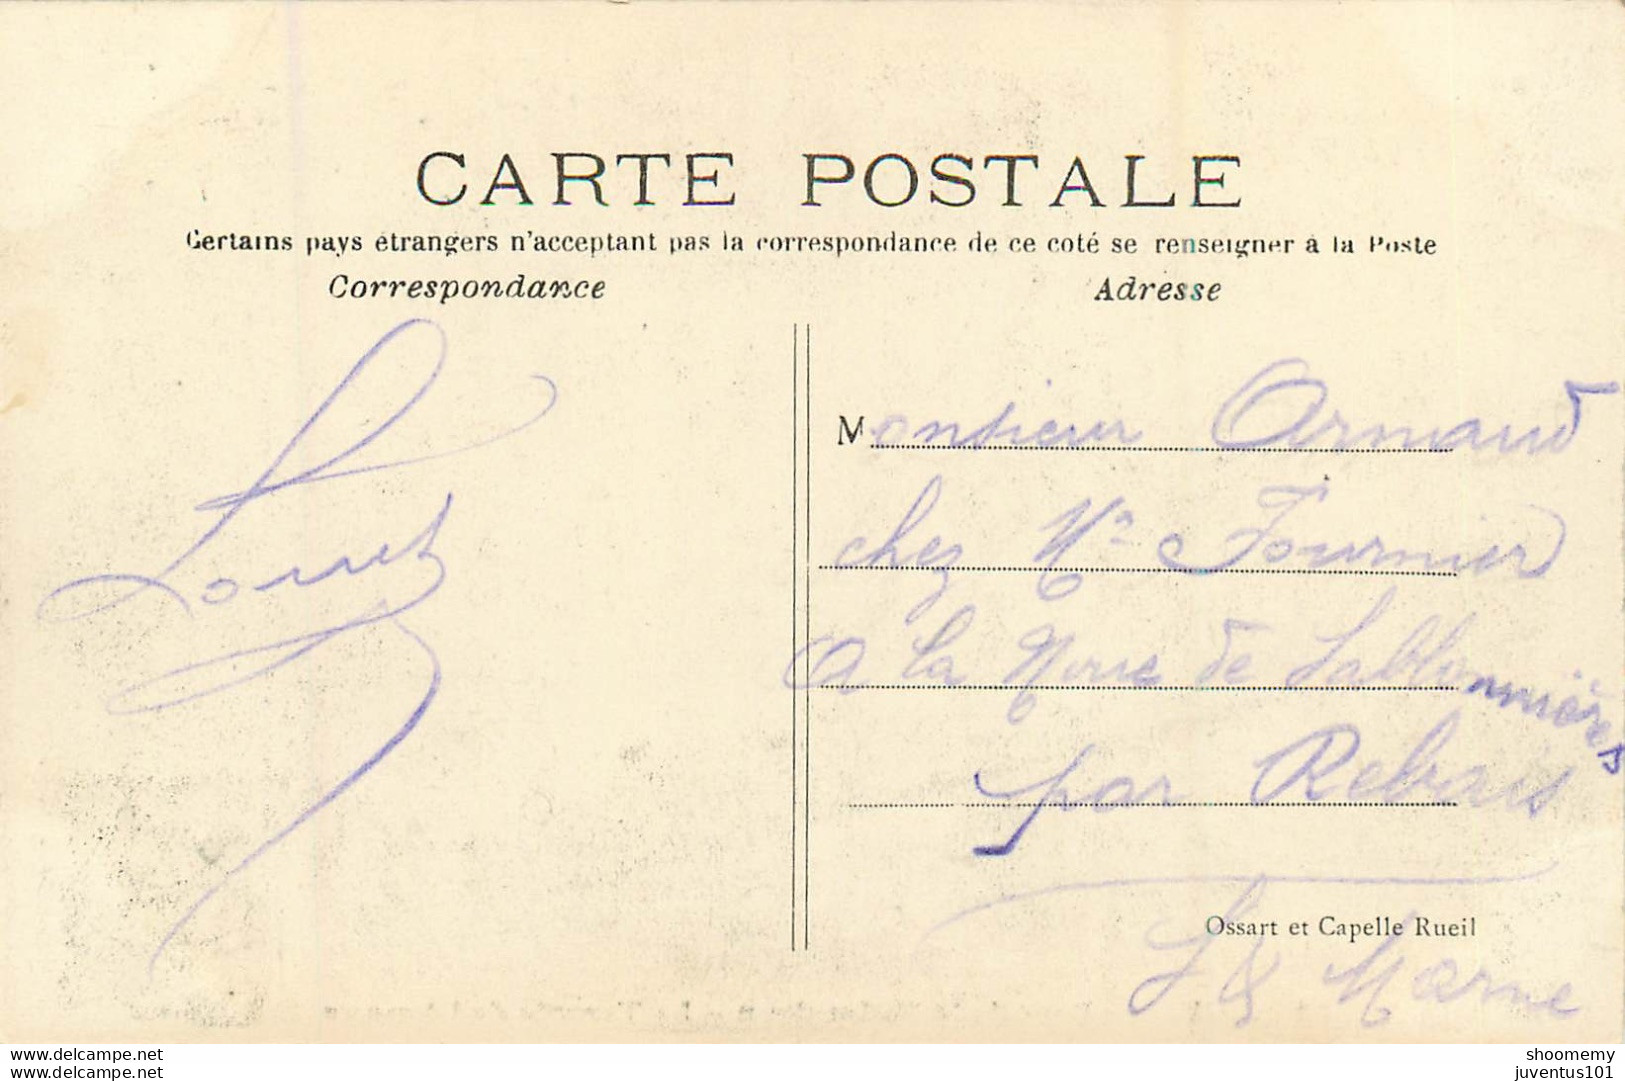 CARTE POSTALE
Certains pays étrangers n'acceptant pas la correspondance de ce coté se renseigner à la Poste
Correspondance
Adresse
Monsieur Armand
chez Mr Fournier
A la Noue de Sablonnières
par Rebais
Ossart et Capelle Rueil
S & Marne
www.delcampe.com
www.delcampe.com
shoomemy
juventus101